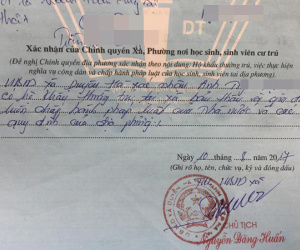 ĐT
Xác nhận của Chính quyền Xã, Phường nơi học sinh, sinh viên cư trú
(Đề nghị Chính quyền địa phương xác nhận theo nội dung: Hộ khẩu thường trú, việc thực hiện
nghĩa vụ công dân và chấp hành pháp luật của học sinh, sinh viên tại địa phương)
UBND xã xác nhận Anh
có hộ khẩu thường trú tại xã bản thân và gia đình
luôn chấp hành pháp luật của nhà nước và các
quy định của địa phương.
Ngày 10 tháng 8 năm 2017
(Ghi rõ họ tên, chức vụ, ký và đóng dấu)
TM. UBND xã
CHỦ TỊCH
Nguyễn Đăng Huấn